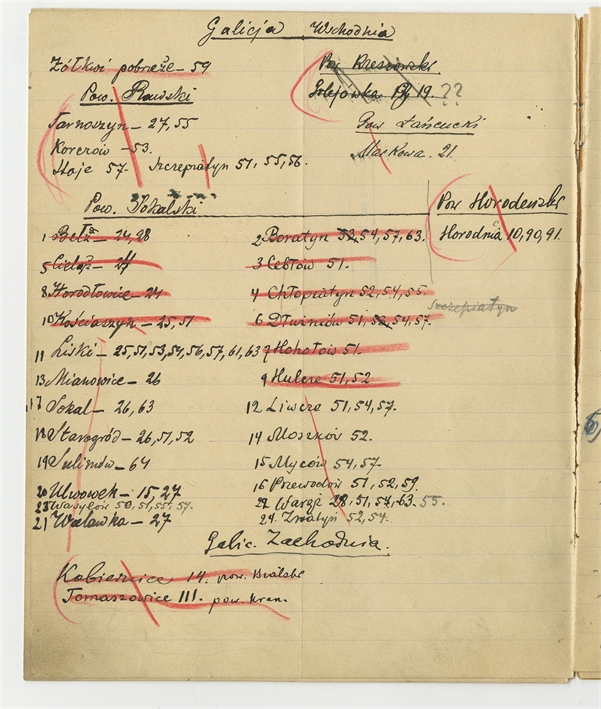 Galicja Wschodnia
Żółkwi pobrzeże - 59
Pow. Rzeszowski
Pow. Rawski
19 ??
Tarnoszyn - 27, 55
Pow Łańcucki
Korczów - 53.
Markowa. 21.
Hoje 57. Szczepiatyn 51, 55, 56.
Pow. Sokalski
Pow Horodeński
1 Bełz - 24, 28
2 Boratyn 52, 54, 57, 63.
Horodnia 10, 90, 91.
5 Cieląż - 27
3 Cebłów 51.
8 Horodłowice - 24
4 Chłopiatyn 52, 54, 55.
Szczepiatyn
10 Kościaszyn - 25, 51
6 Dłużniów 51, 52, 54, 57.
11 Liski - 25, 51, 53, 54, 56, 57, 61, 63
7 Hohołów 51.
13 Mianowice - 26
9 Hulcze 51, 52
17 Sokal - 26, 63
12 Liwcze 51, 54, 57.
18 Starogród - 26, 51, 52
14 Moszków 52.
19 Sulimów - 64
15 Myców 54, 57.
20 Ulwowek - 15, 27
16 Przewodów 51, 52, 59.
23 Wasylów 50, 51, 55, 57
22 Waręż 28, 51, 57, 63. 55.
21 Walawka - 27
24 Żniatyn 52, 54.
Galic. Zachodnia.
Kobiernice 14. pow. Bialski
Tomaszowice III. pow. Krak.